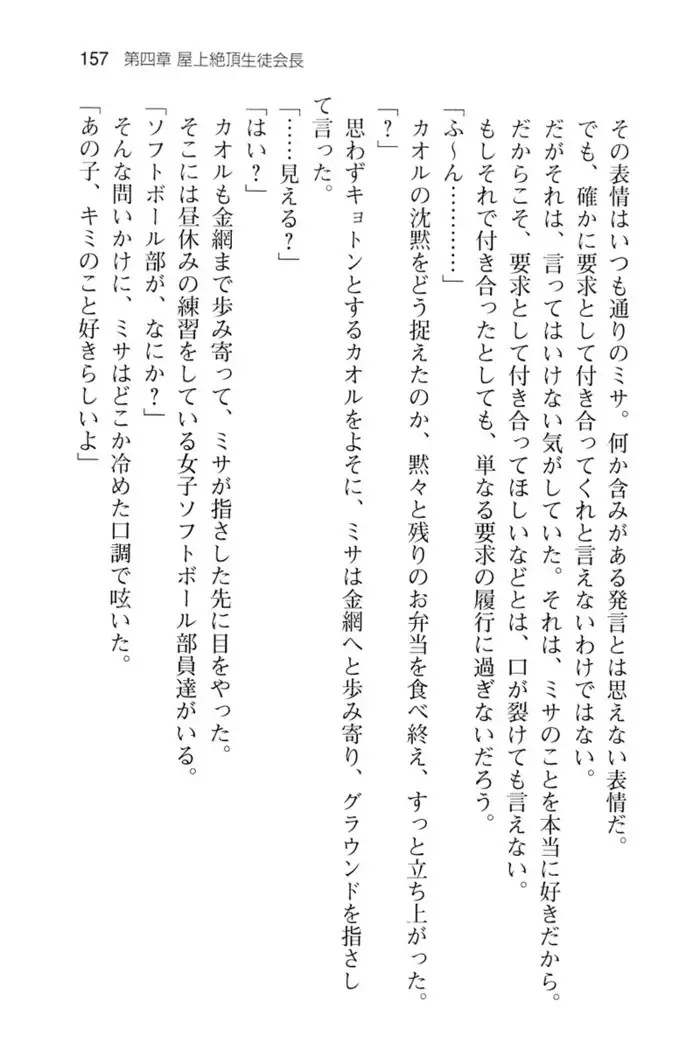 157　第四章 屋上絶頂生徒会長
その表情はいつも通りのミサ。何か含みがある発言とは思えない表情だ。
でも、確かに要求として付き合ってくれと言えないわけではない。
だがそれは、言ってはいけない気がしていた。それは、ミサのことを本当に好きだから。
だからこそ、要求として付き合ってほしいなどとは、口が裂けても言えない。
もしそれで付き合ったとしても、単なる要求の履行に過ぎないだろう。
「ふ～ん…………」
カオルの沈黙をどう捉えたのか、黙々と残りのお弁当を食べ終え、すっと立ち上がった。
「？」
思わずキョトンとするカオルをよそに、ミサは金網へと歩み寄り、グラウンドを指さし
て言った。
「……見える？」
「はい？」
カオルも金網まで歩み寄って、ミサが指さした先に目をやった。
そこには昼休みの練習をしている女子ソフトボール部員達がいる。
「ソフトボール部が、なにか？」
そんな問いかけに、ミサはどこか冷めた口調で呟いた。
「あの子、キミのこと好きらしいよ」